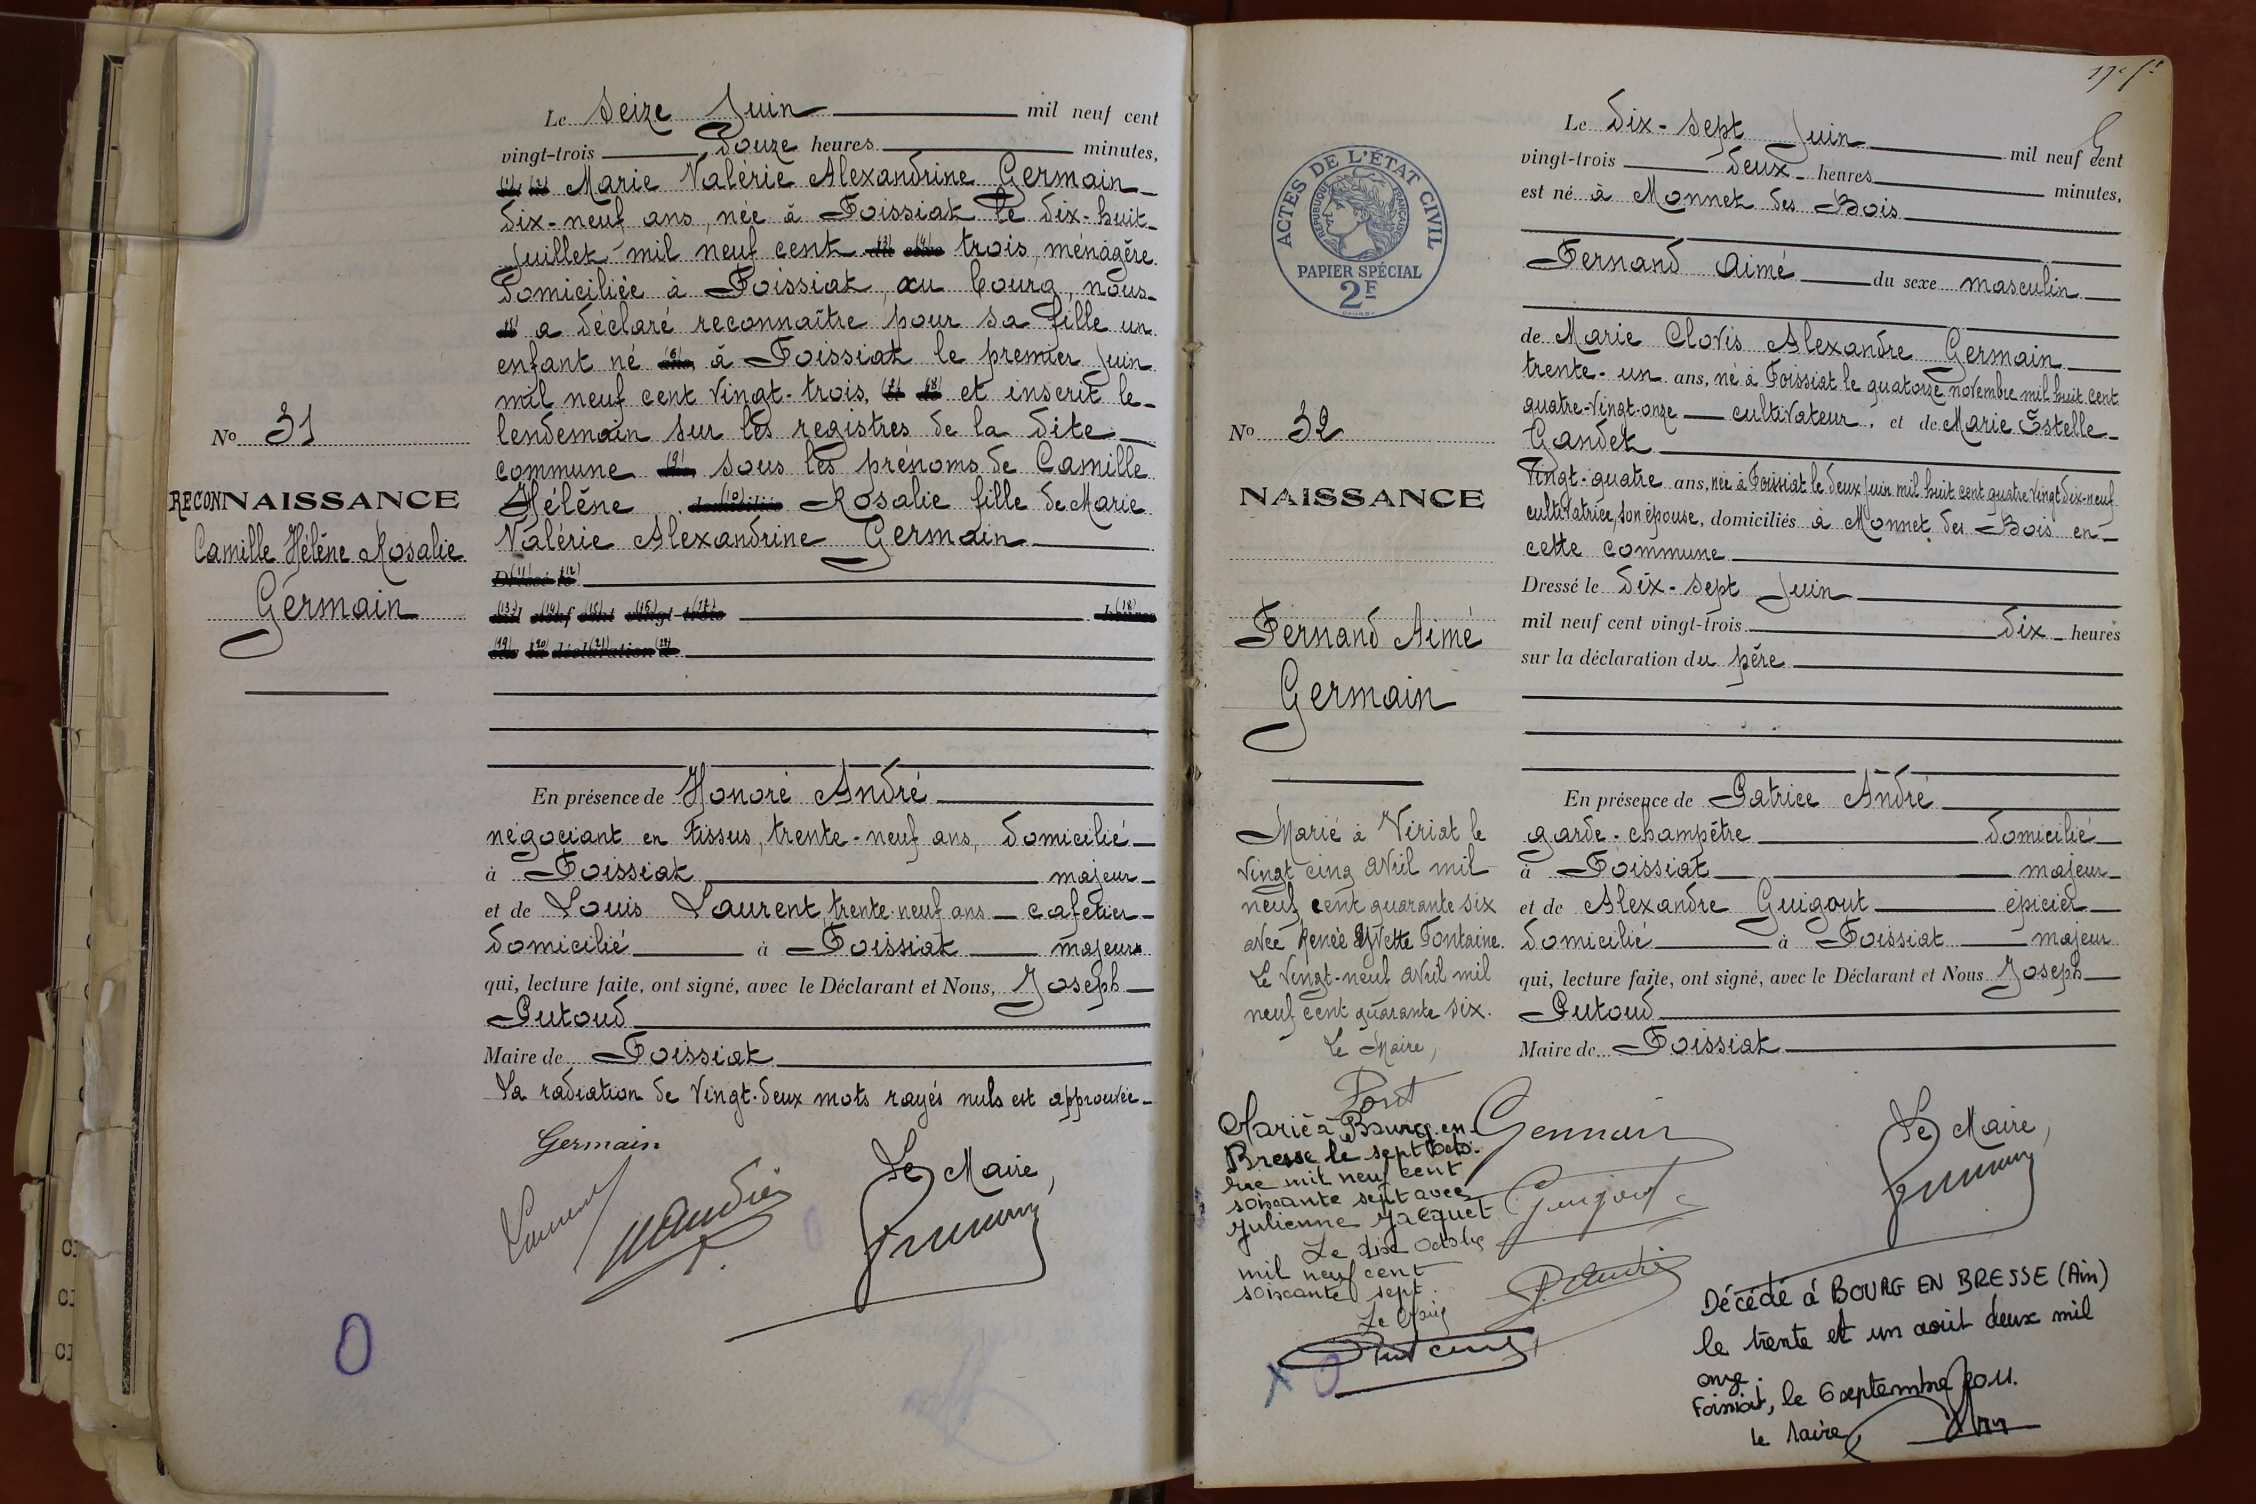 Le Seize Juin mil neuf cent
vingt-trois Douze heures minutes,
(1) (2) Marie Valérie Alexandrine Germain
dix-neuf ans, née à Foissiat le dix-huit
Juillet mil neuf cent (3) (4) trois, ménagère
domiciliée à Foissiat, au bourg, nous
(5) a déclaré reconnaître pour sa fille un
enfant né (6) à Foissiat le premier Juin
mil neuf cent vingt-trois, (7) (8) et inscrit le
lendemain sur les registres de la dite
commune (9) sous les prénoms de Camille
Hélène (10) domiciliés Rosalie fille de Marie
Valérie Alexandrine Germain
Dressé le (11) (12)
mil neuf cent vingt-trois (13) (14) (15) (16) (17) heures (18)
sur la déclaration (19) (20) (21) (22)
No 31
RECONNAISSANCE
Camille Hélène Rosalie
Germain
En présence de Honoré André
négociant en tissus, trente-neuf ans, domicilié
à Foissiat majeur
et de Louis Laurent, trente-neuf ans cafetier
domicilié à Foissiat majeur
qui, lecture faite, ont signé, avec le Déclarant et Nous, Joseph
Putoud
Maire de Foissiat
La radiation de vingt-deux mots rayés nuls est approuvée
Germain
Laurent
H André
Le Maire,
17e ft
ACTES DE L'ÉTAT CIVIL
RÉPUBLIQUE FRANÇAISE
PAPIER SPÉCIAL
2F
Le dix-sept Juin mil neuf cent
vingt-trois deux heures minutes,
est né à Monnet des Bois
Fernand Aimé du sexe masculin
de Marie Clovis Alexandre Germain
trente-un ans, né à Foissiat le quatorze novembre mil huit cent
quatre-vingt-onze cultivateur, et de Marie Estelle
Gandet
vingt-quatre ans, née à Foissiat le deux Juin mil huit cent quatre vingt dix-neuf
cultivatrice, son épouse, domiciliés à Monnet des Bois en
cette commune
Dressé le dix-sept Juin
mil neuf cent vingt-trois dix heures
sur la déclaration du père
No 32
NAISSANCE
Fernand Aimé
Germain
En présence de Patrice André
garde-champêtre domicilié
à Foissiat majeur
et de Alexandre Guigout épicier
domicilié à Foissiat majeur
qui, lecture faite, ont signé, avec le Déclarant et Nous Joseph
Putoud
Maire de Foissiat
Marié à Viriat le
vingt cinq avril mil
neuf cent quarante six
avec Renée Yvette Fontaine.
Le vingt-neuf avril mil
neuf cent quarante six.
Le Maire,
Marié à Bourg-en-
Bresse le sept octo-
bre mil neuf cent
soixante sept avec
Julienne Jacquet
Le dix octobre
mil neuf cent
soixante sept.
Le Maire
Germain
Guigout
P. André
Le Maire,
Décédé à BOURG EN BRESSE (Ain)
le trente et un août deux mil
onze.
Foissiat, le 6 septembre 2011.
Le Maire